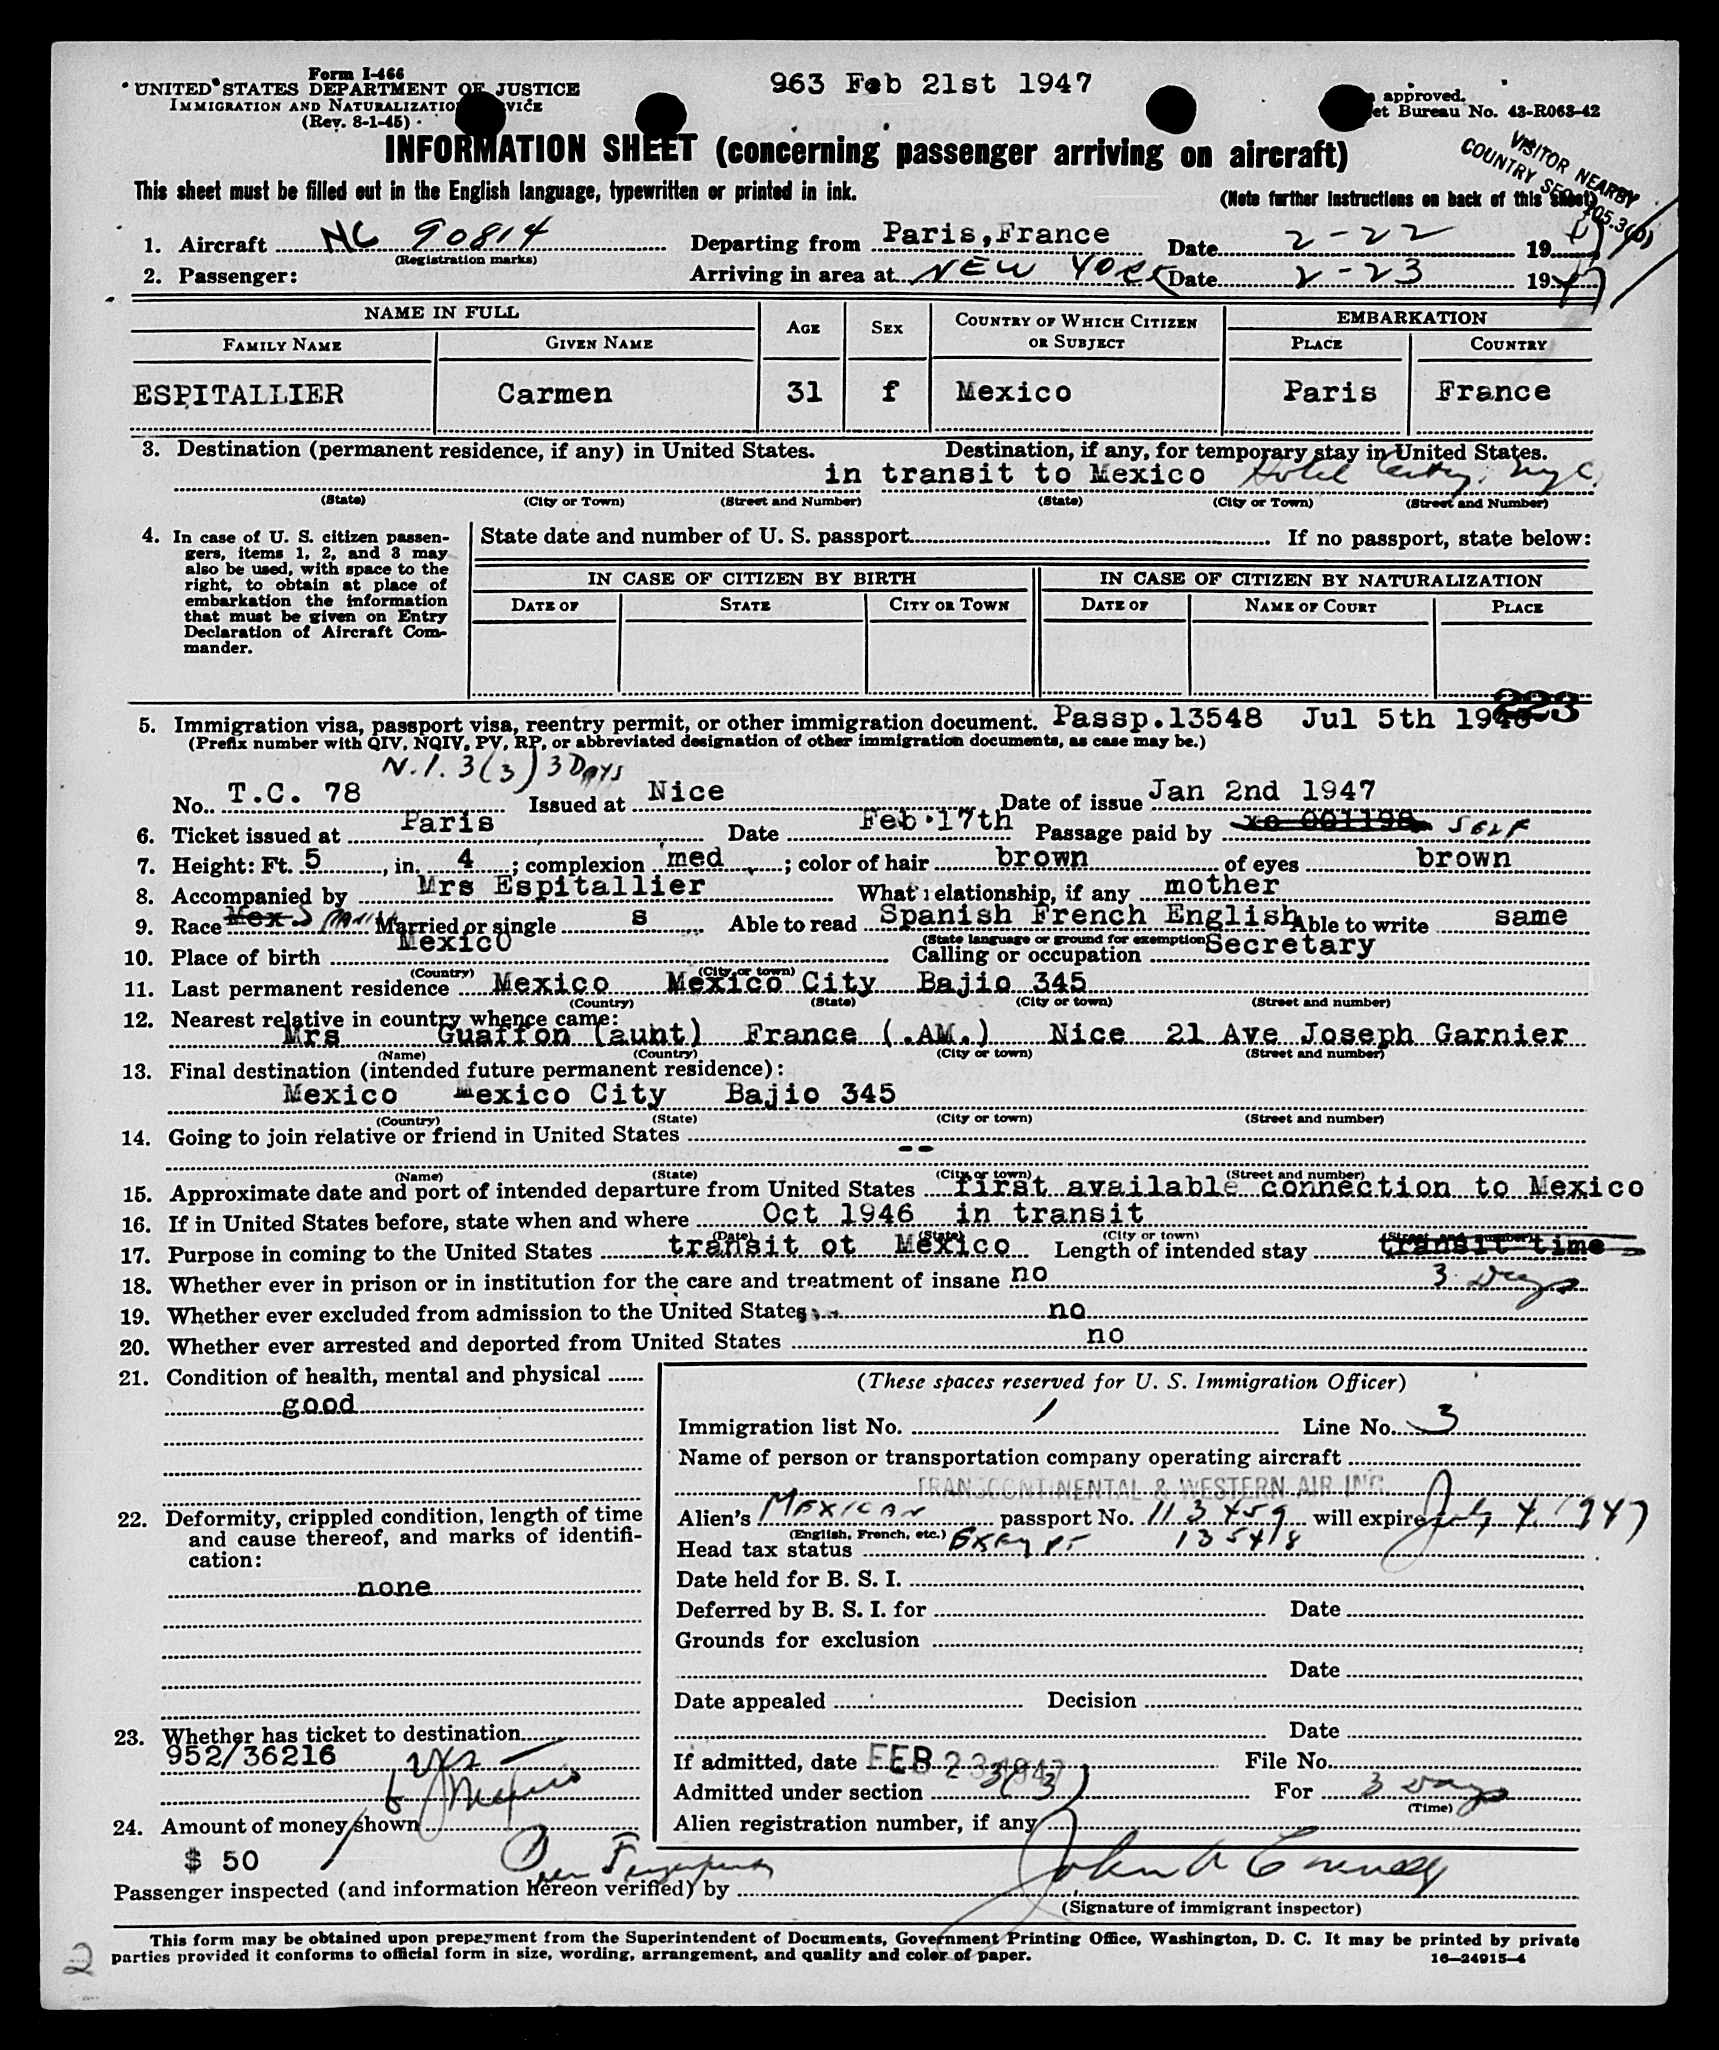 Form I-466
UNITED STATES DEPARTMENT OF JUSTICE
963 Feb 21st 1947
approved.
IMMIGRATION AND NATURALIZATIO VICE
et Bureau No. 43-R063-42
(Rev. 8-1-45)
INFORMATION SHEET (concerning passenger arriving on aircraft)
VISITOR NEARBY
COUNTRY SEC. 205.3(b)
This sheet must be filled out in the English language, typewritten or printed in ink.
(Note further instructions on back of this sheet)
1. Aircraft NC 90814 Departing from Paris,France Date 2-22 1947
(Registration marks)
2. Passenger: Arriving in area at NEW YORK Date 2-23 1947
NAME IN FULL AGE SEX COUNTRY OF WHICH CITIZEN OR SUBJECT EMBARKATION
FAMILY NAME GIVEN NAME PLACE COUNTRY
ESPITALLIER Carmen 31 f Mexico Paris France
3. Destination (permanent residence, if any) in United States. Destination, if any, for temporary stay in United States.
in transit to Mexico Hotel NYC
(State) (City or Town) (Street and Number) (State) (City or Town) (Street and Number)
4. In case of U. S. citizen passen-
gers, items 1, 2, and 3 may
also be used, with space to the
right, to obtain at place of
embarkation the information
that must be given on Entry
Declaration of Aircraft Com-
mander.
State date and number of U. S. passport If no passport, state below:
IN CASE OF CITIZEN BY BIRTH IN CASE OF CITIZEN BY NATURALIZATION
DATE OF STATE CITY OR TOWN DATE OF NAME OF COURT PLACE
223
5. Immigration visa, passport visa, reentry permit, or other immigration document. Passp.13548 Jul 5th 1946
(Prefix number with QIV, NQIV, PV, RP, or abbreviated designation of other immigration documents, as case may be.)
N.I. 3(3) 3 DAYS
No. T.C. 78 Issued at Nice Date of issue Jan 2nd 1947
6. Ticket issued at Paris Date Feb.17th Passage paid by xo 001198 SELF
7. Height: Ft. 5, in. 4; complexion med; color of hair brown of eyes brown
8. Accompanied by Mrs Espitallier What relationship, if any mother
9. Race Mex Married or single s Able to read Spanish French English Able to write same
(State language or ground for exemption)
10. Place of birth Mexico Calling or occupation Secretary
(Country) (City or town)
11. Last permanent residence Mexico Mexico City Bajio 345
(Country) (State) (City or town) (Street and number)
12. Nearest relative in country whence came:
Mrs Guaffon (aunt) France (.AM.) Nice 21 Ave Joseph Garnier
(Name) (Country) (City or town) (Street and number)
13. Final destination (intended future permanent residence):
Mexico Mexico City Bajio 345
(Country) (State) (City or town) (Street and number)
14. Going to join relative or friend in United States
--
(Name) (State) (City or town) (Street and number)
15. Approximate date and port of intended departure from United States first available connection to Mexico
16. If in United States before, state when and where Oct 1946 in transit
(Date) (State) (City or town) (Street and number)
17. Purpose in coming to the United States transit ot Mexico Length of intended stay transit time
18. Whether ever in prison or in institution for the care and treatment of insane no 3 Days
19. Whether ever excluded from admission to the United States no
20. Whether ever arrested and deported from United States no
21. Condition of health, mental and physical
good
22. Deformity, crippled condition, length of time
and cause thereof, and marks of identifi-
cation:
none
23. Whether has ticket to destination
952/36216 yes
to Mexico
24. Amount of money shown
$ 50
(These spaces reserved for U. S. Immigration Officer)
Immigration list No. 1 Line No. 3
Name of person or transportation company operating aircraft
TRANSCONTINENTAL & WESTERN AIR INC.
Alien's MEXICAN passport No. 113459 will expire July 4 1947
(English, French, etc.)
Head tax status Exempt 135418
Date held for B. S. I.
Deferred by B. S. I. for Date
Grounds for exclusion
Date
Date appealed Decision
Date
If admitted, date FEB 23 1947 File No.
Admitted under section 3(3) For 3 Days
(Time)
Alien registration number, if any
Passenger inspected (and information hereon verified) by
(Signature of immigrant inspector)
This form may be obtained upon prepayment from the Superintendent of Documents, Government Printing Office, Washington, D. C. It may be printed by private
parties provided it conforms to official form in size, wording, arrangement, and quality and color of paper.
16—24915-4
2